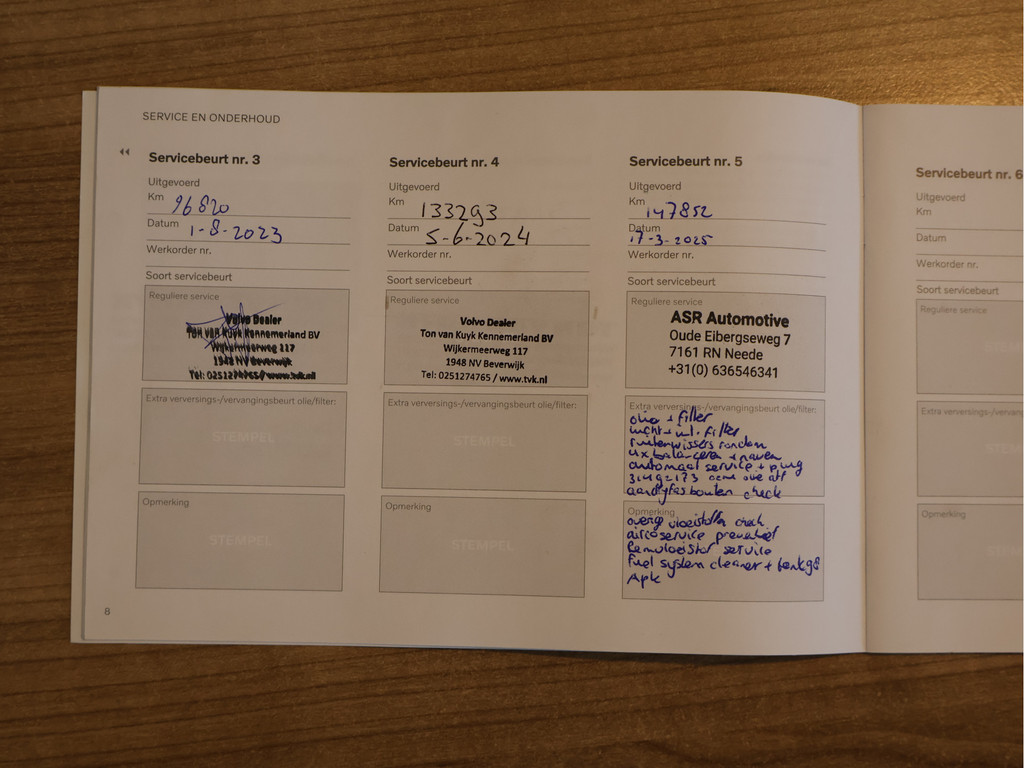 SERVICE EN ONDERHOUD
Servicebeurt nr. 3
Uitgevoerd
Km 96820
Datum 1-8-2023
Werkorder nr.
Soort servicebeurt
Reguliere service
Volvo Dealer
Ton van Kuyk Kennemerland BV
Wijkermeerweg 117
1948 NV Beverwijk
Tel: 0251274765 / www.tvk.nl
Extra verversings-/vervangingsbeurt olie/filter:
STEMPEL
Opmerking
STEMPEL
8
Servicebeurt nr. 4
Uitgevoerd
Km 133293
Datum 5-6-2024
Werkorder nr.
Soort servicebeurt
Reguliere service
Volvo Dealer
Ton van Kuyk Kennemerland BV
Wijkermeerweg 117
1948 NV Beverwijk
Tel: 0251274765 / www.tvk.nl
Extra verversings-/vervangingsbeurt olie/filter:
STEMPEL
Opmerking
STEMPEL
Servicebeurt nr. 5
Uitgevoerd
Km 147852
Datum 17-3-2025
Werkorder nr.
Soort servicebeurt
Reguliere service
ASR Automotive
Oude Eibergseweg 7
7161 RN Neede
+31(0) 636546341
Extra verversings-/vervangingsbeurt olie/filter:
olie + filter
lucht + int. filter
ruitenwissers rondom
4x balanceren + naven
automaat service +
check
Opmerking
overig vloeistoffen check
aircoservice preventief
Remvloeistof service
Fuel system cleaner +
Apk
Servicebeurt nr. 6
Uitgevoerd
Km
Datum
Werkorder nr.
Soort servicebeurt
Reguliere service
Extra verversings-/vervangin
Opmerking